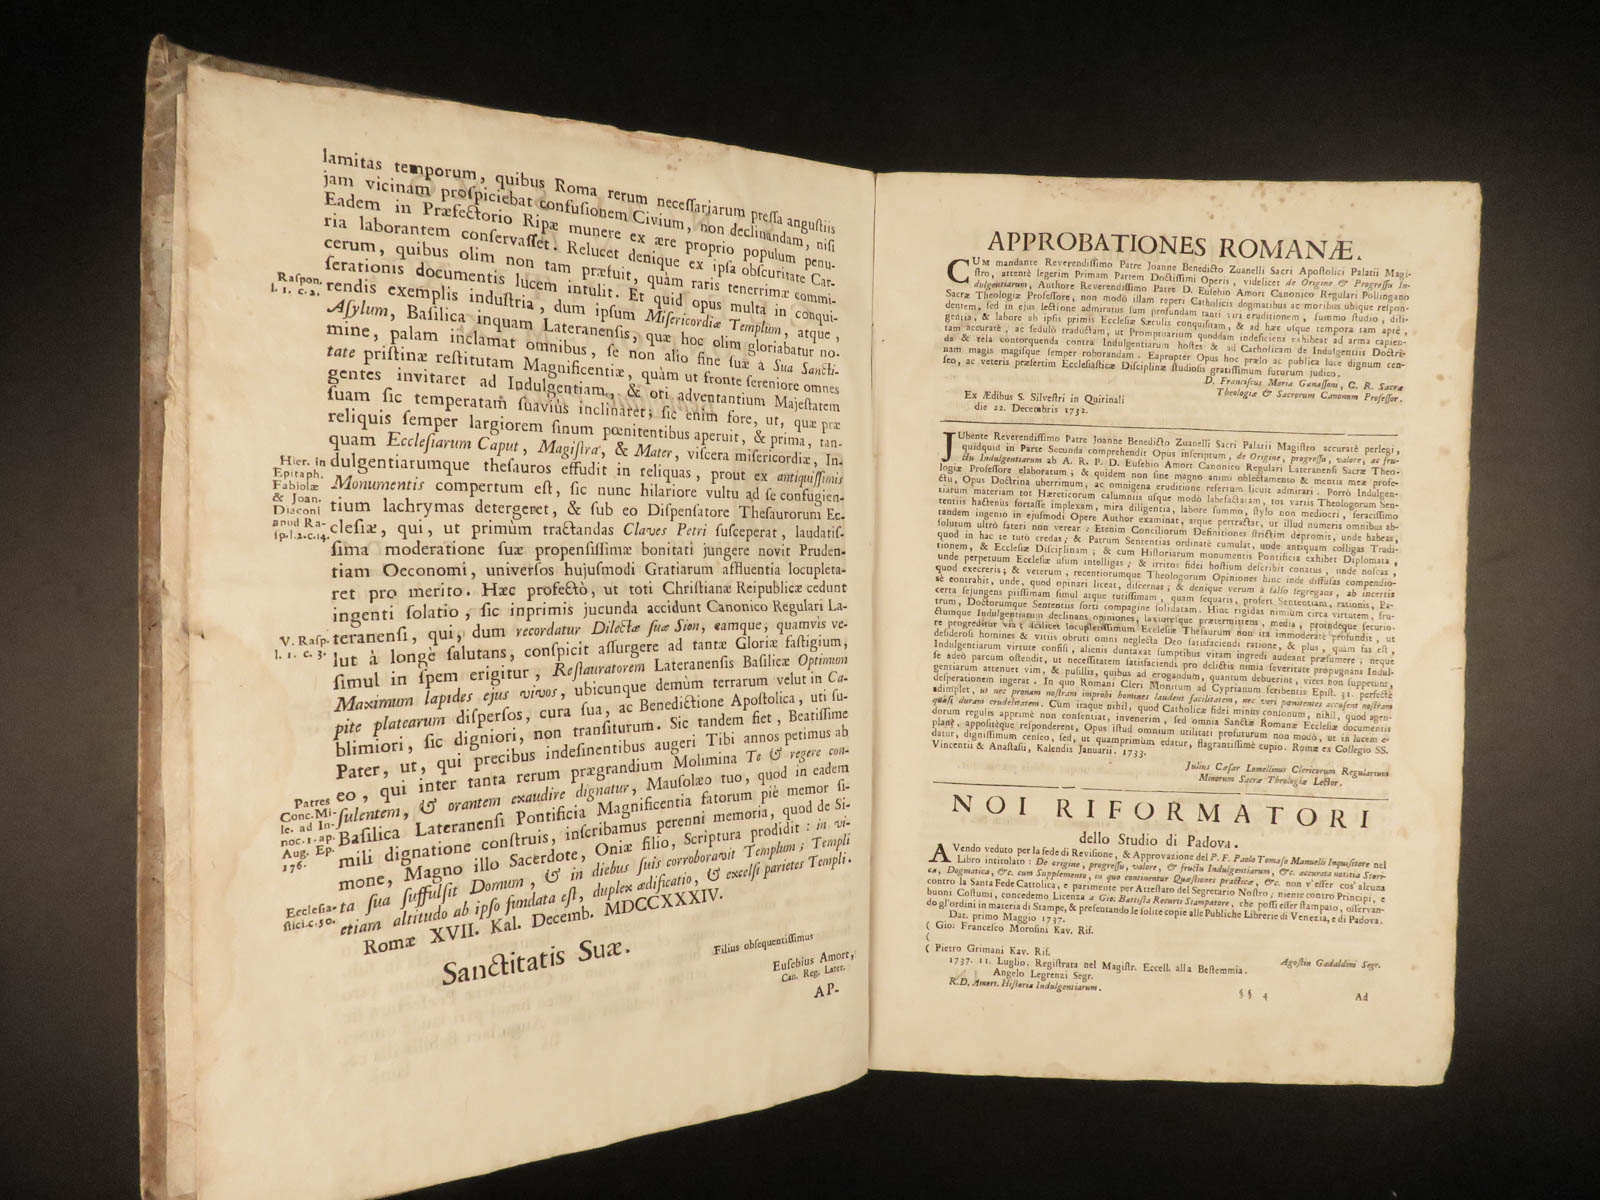 lamitas temporum, quibus Roma rerum necessariarum pressa angustiis
jam vicinam prospiciebat confusionem Civium, non declinandam, nisi
Eadem in Præfectorio Ripæ munere ex ære proprio populum penu-
ria laborantem conservasset. Relucet denique ex ipsa obscuritate Car-
cerum, quibus olim non tam præfuit, quàm raris tenerrimæ commi-
serationis documentis lucem intulit. Et quid opus multa in conqui-
Raspon.
l. 1. c. 2.
rendis exemplis industria, dum ipsum Misericordiæ Templum, atque
Asylum, Basilica inquam Lateranensis, quæ hoc olim gloriabatur no-
mine, palam inclamat omnibus, se non alio fine suæ à Sua Sancti-
tate pristinæ restitutam Magnificentiæ, quàm ut fronte sereniore omnes
gentes invitaret ad Indulgentiam, & oti adventantium Majestatem
suam sic temperatam suaviùs inclinaret; sic enim fore, ut, quæ præ
reliquis semper largiorem sinum pœnitentibus aperuit, & prima, tan-
quam Ecclesiarum Caput, Magistra, & Mater, viscera misericordiæ, In-
Hier. in
Epitaph.
Fabiolæ
& Joan.
Diaconi
apud Ra-
sp. l. 2. c. 14.
dulgentiarumque thesauros effudit in reliquas, prout ex antiquissimis
Monumentis compertum est, sic nunc hilariore vultu ad se confugien-
tium lachrymas detergeret, & sub eo Dispensatore Thesaurorum Ec-
clesiæ, qui, ut primùm tractandas Claves Petri susceperat, laudatis-
sima moderatione suæ propensissimæ bonitati jungere novit Pruden-
tiam Oeconomi, universos hujusmodi Gratiarum affluentia locupleta-
ret pro merito. Hæc profectò, ut toti Christianæ Reipublicæ cedunt
ingenti solatio, sic inprimis jucunda accidunt Canonico Regulari La-
V. Rasp.
l. 1. c. 3.
teranensi, qui, dum recordatur Dilectæ suæ Sion, eamque, quamvis ve-
lut à longè salutans, conspicit assurgere ad tantæ Gloriæ fastigium,
simul in spem erigitur, Restauratorem Lateranensis Basilicæ Optimum
Maximum lapides ejus vivos, ubicunque demùm terrarum velut in Ca-
pite platearum dispersos, cura sua, ac Benedictione Apostolica, uti su-
blimiori, sic digniori, non transiturum. Sic tandem fiet, Beatissime
Pater, ut, qui precibus indesinentibus augeri Tibi annos petimus ab
eo, qui inter tanta rerum prægrandium Molimina Te & regere con-
Patres
Conc. Mi-
le. ad In-
noc. 1. ap.
Aug. Ep.
176.
sulentem, & orantem exaudire dignatur, Mausolæo tuo, quod in eadem
Basilica Lateranensi Pontificia Magnificentia fatorum piè memor si-
mili dignatione construis, inscribamus perenni memoria, quod de Si-
mone, Magno illo Sacerdote, Oniæ filio, Scriptura prodidit: in vi-
Ecclesia-
stici. c. 50.
ta sua suffulsit Domum, & in diebus suis corroboravit Templum; Templi
etiam altitudo ab ipso fundata est, duplex ædificatio, & excelsi parietes Templi.
Romæ XVII. Kal. Decemb. MDCCXXXIV.
Sanctitatis Suæ.
Filius obsequentissimus
Eusebius Amort,
Can. Reg. Later.
AP-
APPROBATIONES ROMANÆ.
CUM mandante Reverendissimo Patre Joanne Benedicto Zuanelli Sacri Apostolici Palatii Magi-
stro, attentè legerim Primam Partem Doctissimi Operis, videlicet de Origine & Progressu In-
dulgentiarum, Authore Reverendissimo Patre D. Eusebio Amort Canonico Regulari Pollingano
Sacræ Theologiæ Professore, non modò illam reperi Catholicis dogmatibus ac moribus ubique respon-
dentem, sed in ejus lectione admiratus sum profundam tanti viri eruditionem, summo studio, dili-
gentia, & labore ab ipsis primis Ecclesiæ Sæculis conquisitam, & ad hæc usque tempora tam aptè,
tam accuratè, ac sedulò traductam, ut Promptuarium quoddam indeficiens exhibeat ad arma capien-
da & tela contorquenda contra Indulgentiarum hostes & ad Catholicam de Indulgentiis Doctri-
nam magis magisque semper roborandam. Eapropter Opus hoc prælo ac publica luce dignum cen-
seo, ac veteris præsertim Ecclesiasticæ Disciplinæ studiosis gratissimum futurum judico.
D. Franciscus Maria Ganassoni, C. R. Sacræ
Theologiæ & Sacrorum Canonum Professor.
Ex Ædibus S. Silvestri in Quirinali
die 22. Decembris 1732.
JUbente Reverendissimo Patre Joanne Benedicto Zuanelli Sacri Palatii Magistro accuratè perlegi,
quidquid in Parte Secunda comprehendit Opus inscriptum, de Origine, progressu, valore, ac fru-
ctu Indulgentiarum ab A. R. P. D. Eusebio Amort Canonico Regulari Lateranensi Sacræ Theo-
logiæ Professore elaboratum; & quidem non sine magno animi oblectamento & mentis meæ profe-
ctu, Opus Doctrina uberrimum, ac omnigena eruditione refertum licuit admirari. Porrò Indulgen-
tiarum materiam tot Hæreticorum calumniis usque modò labefactatam, tot variis Theologorum Sen-
tentiis hactenùs fortasse implexam, mira diligentia, labore summo, stylo non mediocri, feracissimo
tandem ingenio in ejusmodi Opere Author examinat, atque pertractat, ut illud numeris omnibus ab-
solutum ultrò fateri non verear: Etenim Conciliorum Definitiones strictim depromit, unde habeas,
quod in hac re tutò credas; & Patrum Sententias ordinatè cumulat, unde antiquam colligas Tradi-
tionem, & Ecclesiæ Disciplinam; & cum Historiarum monumentis Pontificia exhibet Diplomata,
unde perpetuum Ecclesiæ usum intelligas; & irritos fidei hostium describit conatus, unde noscas,
quod execreris; & veterum, recentiorumque Theologorum Opiniones hinc inde diffusas compendio-
sè contrahit, unde, quod opinari liceat, discernas; & denique verum à falso segregans, ab incertis
certa sejungens piissimam simul atque tutissimam, quam sequaris, profert Sententiam, rationis, Pa-
trum, Doctorumque Sententiis forti compagine solidatam. Hinc rigidas nimiùm circa virtutem, fru-
ctumque Indulgentiarum declinans opiniones, laxioresque prætermittens, media, proindeque securio-
re progreditur via; scilicet locupletissimum Ecclesiæ Thesaurum non ita immoderatè profundit, ut
desiderosi homines & vitiis obruti omni neglecta Deo satisfaciendi ratione, & plus, quàm fas est,
Indulgentiarum virtute confisi, alienis duntaxat sumptibus vitam ingredi audeant præsumere; neque
se adeò parcum ostendit, ut necessitatem satisfaciendi pro delictis nimia severitate propugnans Indul-
gentiarum attenuet vim, & pusillis, quibus ad erogandum, quantum debuerint, vires non suppetunt,
desperationem ingerat. In quo Romani Cleri Monitum ad Cyprianum scribentis Epist. 31. perfectè
adimplet, ut nec pronam nostram improbi homines laudent facilitatem, nec veri pœnitentes accusent nostram
quasi duram crudelitatem. Cum itaque nihil, quod Catholicæ fidei minùs consonum, nihil, quod agen-
dorum regulis apprimè non consentiat, invenerim, sed omnia Sanctæ Romanæ Ecclesiæ documentis
planè, appositèque responderent, Opus istud omnium utilitati profuturum non modò, ut in lucem e-
datur, dignissimum censeo, sed, ut quamprimùm edatur, flagrantissimè cupio. Romæ ex Collegio SS.
Vincentii & Anastasii, Kalendis Januarii. 1733.
Julius Cæsar Lomellinus Clericorum Regularium
Minorum Sacræ Theologiæ Lector.
NOI RIFORMATORI
dello Studio di Padova.
AVendo veduto per la fede di Revisione, & Approvazione del P. F. Paolo Tomaso Manuelli Inquisitore nel
Libro intitolato: De origine, progressu, valore, & fructu Indulgentiarum, &c. accurata notitia Stori-
ca, Dogmatica, &c. cum Supplemento, in quo continentur Quæstiones practicæ, &c. non v'esser cos' alcuna
contro la Santa Fede Cattolica, e parimente per Attestato del Segretario Nostro; niente contro Principi, e
buoni Costumi, concedemo Licenza a Gio: Battista Recurti Stampatore, che possi esser stampato, osservan-
do gl'ordini in materia di Stampe, & presentando le solite copie alle Publiche Librerie di Venezia, e di Padova.
Dat. primo Maggio 1737.
( Gio: Francesco Morosini Kav. Rif.
(
( Pietro Grimani Kav. Rif.
Agostin Gadaldini Segr.
1737. 11. Luglio. Registrata nel Magistr. Eccell. alla Bestemmia.
Angelo Legrenzi Segr.
R.D. Amort. Historia Indulgentiarum.
§§ 4
Ad